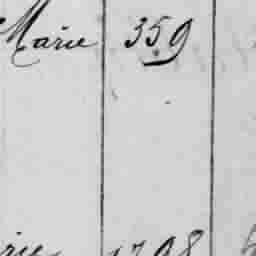 Marie 359
rie 1798